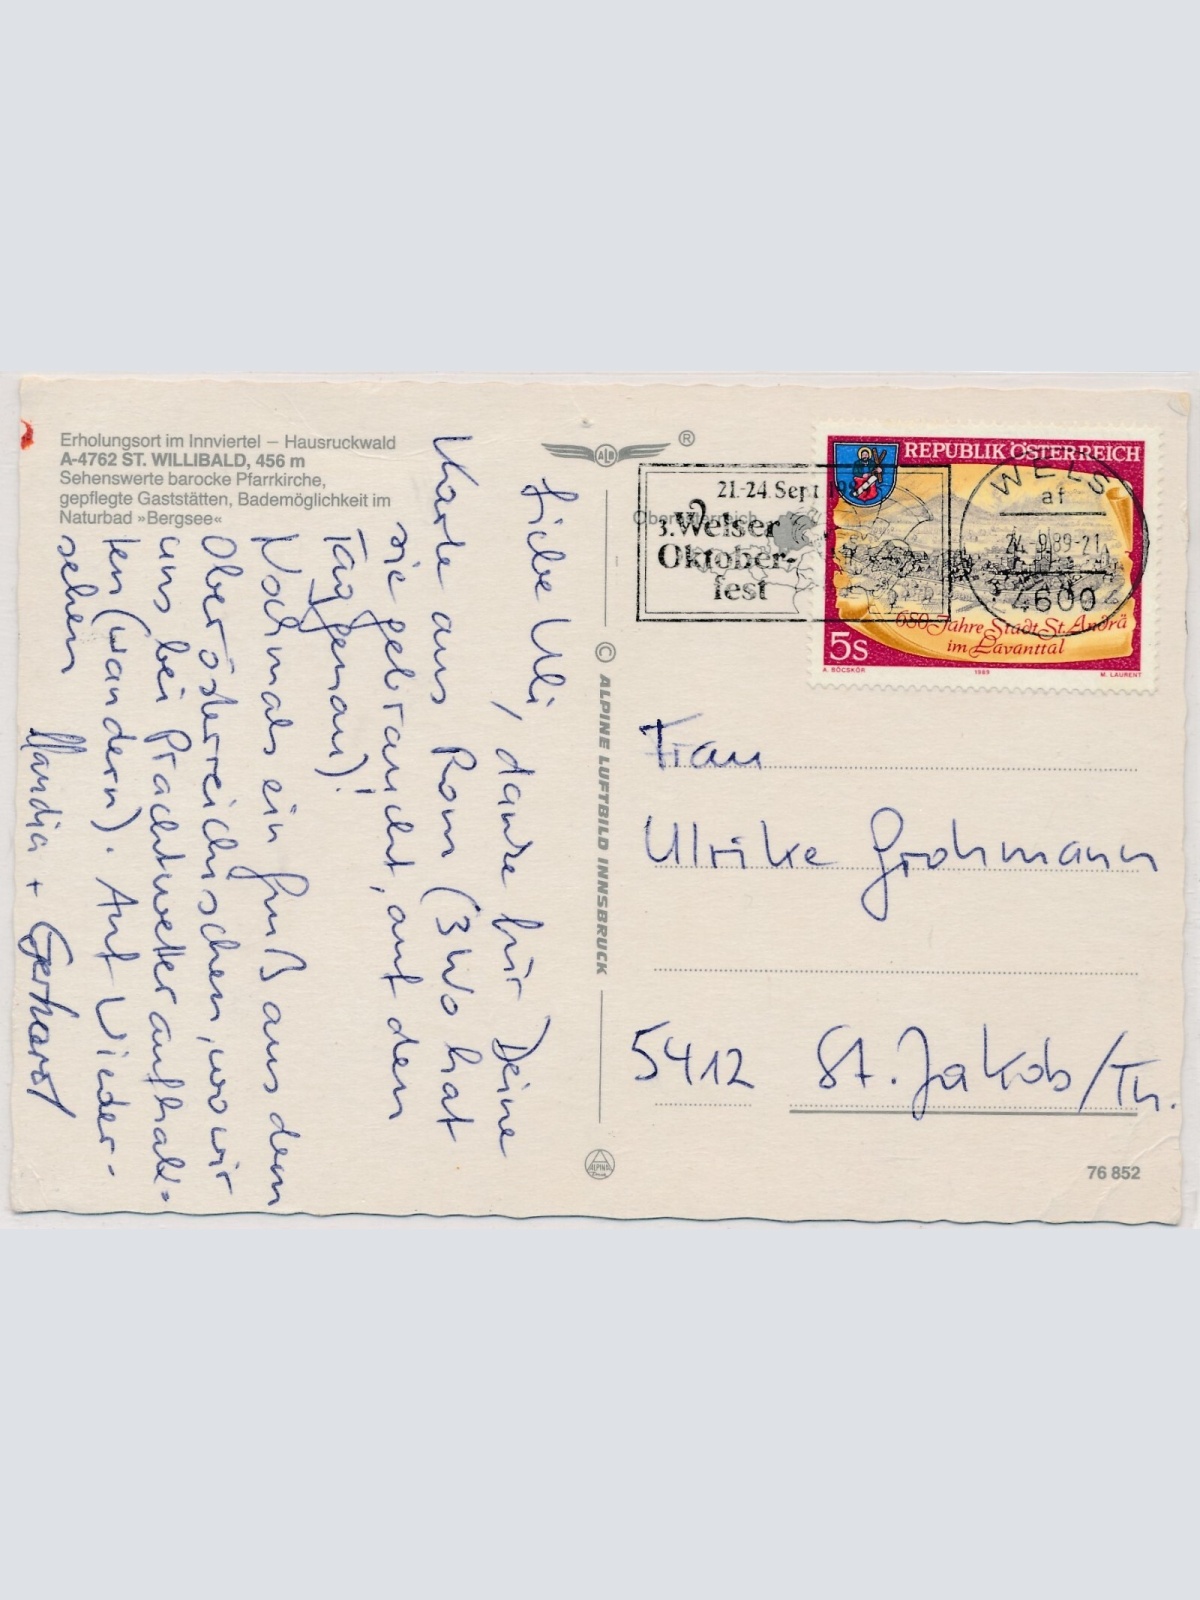 Erholungsort im Innviertel – Hausruckwald
A-4762 ST. WILLIBALD, 456 m
Sehenswerte barocke Pfarrkirche,
gepflegte Gaststätten, Bademöglichkeit im
Naturbad »Bergsee«
Liebe Uli, danke für Deine
Karte aus Rom (3 Wo hat
sie gebraucht, auf den
Tag genau)!
Nochmals ein Gruß aus dem
Oberösterreichischen, wo wir
uns bei Prachtwetter aufhal-
ten (wandern). Auf Wieder-
sehen
+ Gerhard
ALB
®
© ALPINE LUFTBILD INNSBRUCK
ALPINE
21-24. Sept 1989
3. Welser
Oktober-
fest
Oberösterreich
REPUBLIK ÖSTERREICH
650 Jahre Stadt St. Andrä
im Lavanttal
5s
A. BÖCSKÖR
1989
M. LAURENT
WELS
af
24.-9.89-21
4600
Frau
Ulrike Grohmann
5412 St. Jakob/Th.
76 852